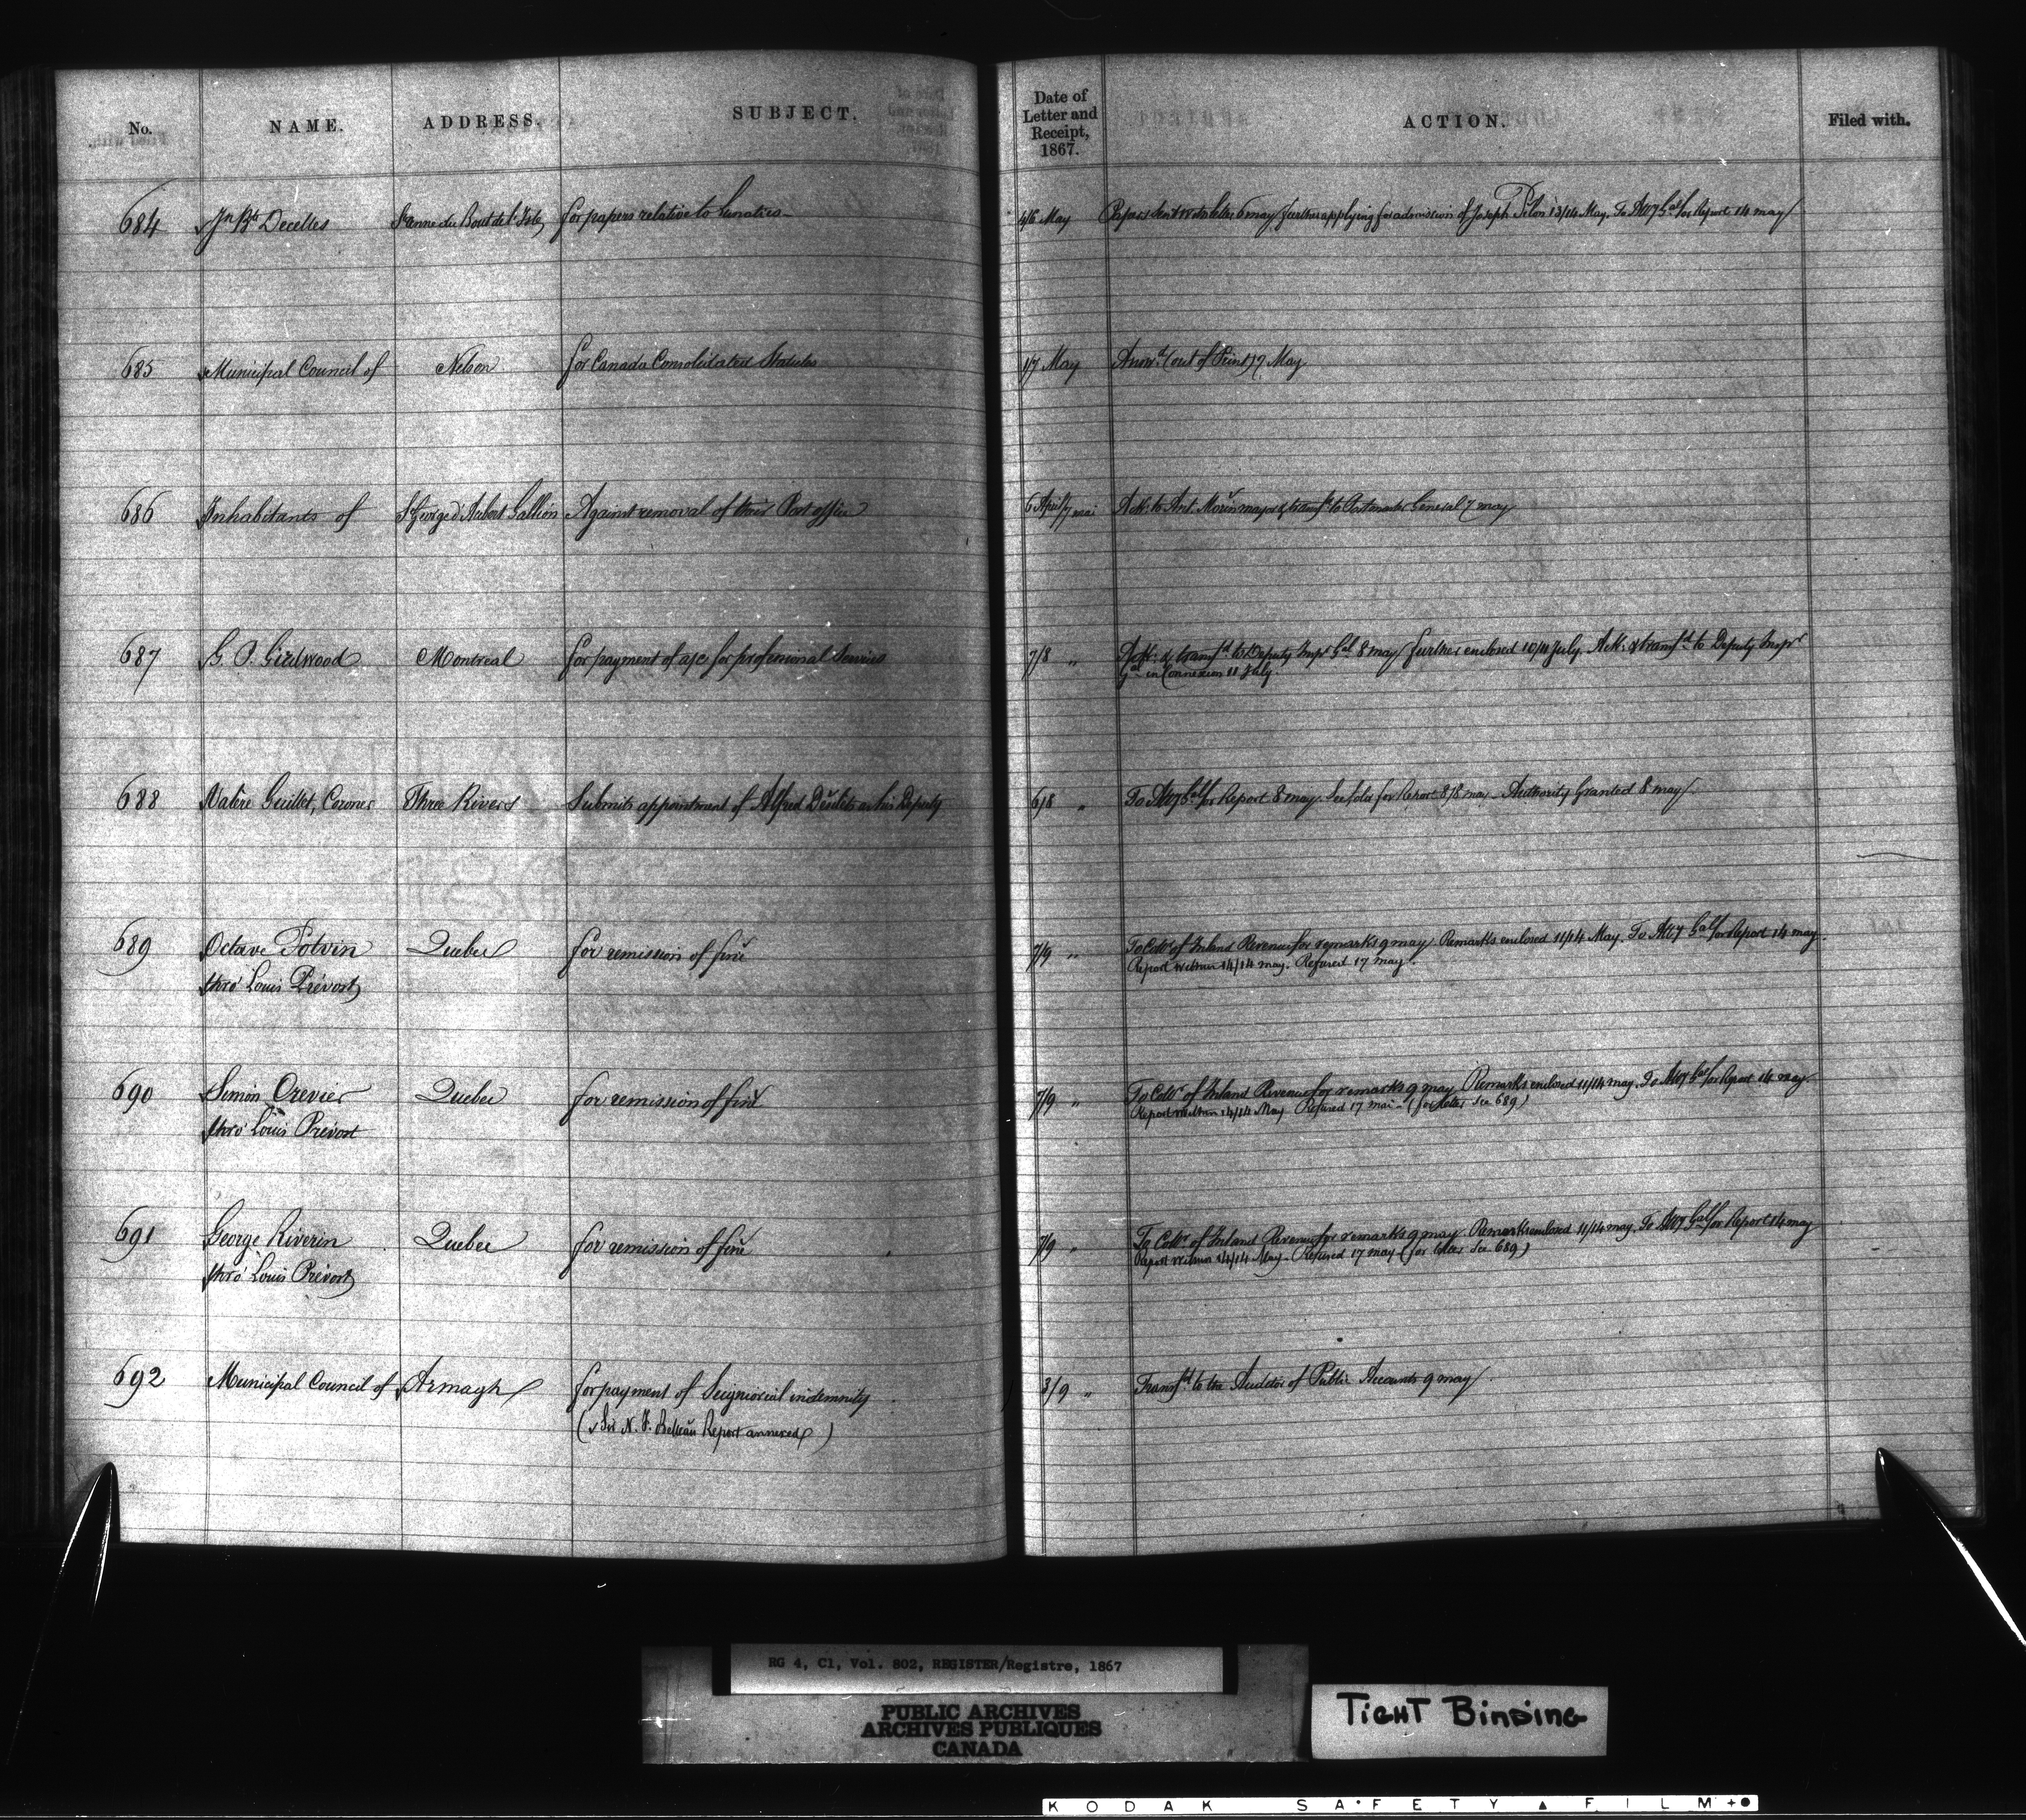 No. NAME. ADDRESS. SUBJECT. Date of Letter and Receipt, 1867. ACTION. Filed with.
684 Jn Bte Decelles St Anne du Bout de l'Isle for papers relative to Lunatics 4/6 May Papers sent letter 6 May further applying for admission of Joseph Pilon 13/14 May. To Atty Gal for Report 14 may
685 Municipal Council of Nelson for Canada Consolidated Statutes 1/7 May Answd (out of Print) 7 May
686 Inhabitants of St George d'Aubert Gallion Against removal of their Post office 6 April/7 mai Ack: to Ant. Morin major & transfd to Postmaster General 7 may
687 G. P. Girdwood Montreal for payment of a/c for professional Services 7/8 " Ack: & transfd to Deputy Inspr Gal 8 may further enclosed 10/11 July. Ack: & transfd to Deputy Inspr
Gal in Connexion 11 July.
688 Valère Guillet, Coroner Three Rivers Submits appointment of Alfred as his Deputy 6/8 " To Atty Gal for Report 8 may. See fold for Report 8/8 may - Authority Granted 8 may
689 Octave Potvin Quebec for remission of fine 7/9 " To Collr of Inland Revenue for remarks 9 may. Remarks enclosed 11/14 May. To Atty Gal for Report 14 may.
thro' Louis Prévost Report within 14/14 may. Refused 17 may.
690 Simon Crevier Quebec for remission of fine 7/9 " To Collr of Inland Revenue for remarks 9 may Remarks enclosed 11/14 may. To Atty Gal for Report 14 may.
thro' Louis Prevost Report within 14/14 May Refused 17 mai - (for letter See 689)
691 George Riverin Quebec for remission of fine 7/9 " To Collr of Inland Revenue for remarks 9 may. Remarks enclosed 11/14 may. To Atty Gal for Report 14 may
thro' Louis Prévost Report within 14/14 May - Refused 17 may (for letter See 689)
692 Municipal Council of Armagh for payment of Seigniorial indemnity 3/9 " Transfd to the Auditor of Public Accounts 9 may.
(Sir N. F. Belleau Report annexed)
RG 4, C1, Vol. 802, REGISTER/Registre, 1867
PUBLIC ARCHIVES
ARCHIVES PUBLIQUES
CANADA
TIGHT BINDING
KODAK SAFETY FILM